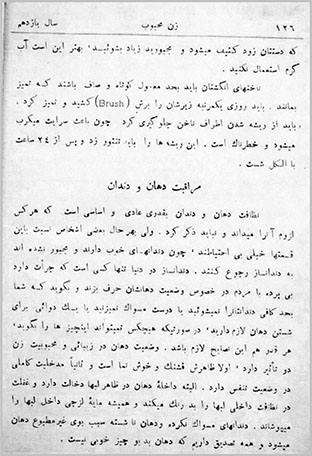 ۱۲۶ زن محبوب سال یازدهم
که دستتان زود کثیف میشود و مجبورید زیاد بشوئید٬ بهتر این است آب
گرم استعمال نکنید.
ناخنهای انگشتان باید بحد معمول کوتاه و صاف باشند که تمیز
بمانند. باید روزی یکمرتبه زیرشان را برش (Brush) کشید و تمیز کرد.
باید از ریشه شدن اطراف ناخن جلوگیری کرد چون باعث سرایت میکرب
میشود و خطرناک است. این ریشه ها را باید تنتور زد و پس از ۲۴ ساعت
با الکل شست.
مراقبت دهان و دندان
نظافت دهان و دندان بقدری عادی و اساسی است که هرکس
لزوم آنرا میداند و نباید ذکر کرد. ولی بهرحال بعضی اشخاص نسبت باین
قسمتها خیلی بی احتیاطند٬ چون دندانهای خوب دارند و مجبور نشده اند
به دندانساز رجوع کنند. دندانساز در دنیا تنها کسی است که جرأت دارد
بی پرده با مردم در خصوص وضعیت دهانشان حرف بزند و بگوید که شما
بحد کافی دندانتانرا نمیشوئید یا درست مسواک نمیزنید یا یک دوائی برای
شستن دهان لازم دارید٬ در صورتیکه هیچکس نمیتواند اینچیز ها را بگوید٬
هر قدر هم این نصایح لازم باشد. وضعیت دهان در زیبائی و محبوبیت زن
دو تأثیر دارد٬ اولا ظاهرش قشنگ و خوش نما است و ثانیاً مدخلیت کاملی
در وضعیت تنفس دارد. البته داخلهٔ دهان در ظاهر لبها دخالت دارد و غفلت
در نظافت داخلی لبها را بد رنگ میکند و همیشه مایهٔ لزجی داخل لبها را
میپوشاند. دندانهای مسواک نکرده ودهان نا شسته سبب بوی غیرمطبوع دهان
میشود و همه تصدیق داریم که دهان بد بو چیز خوبی نیست.